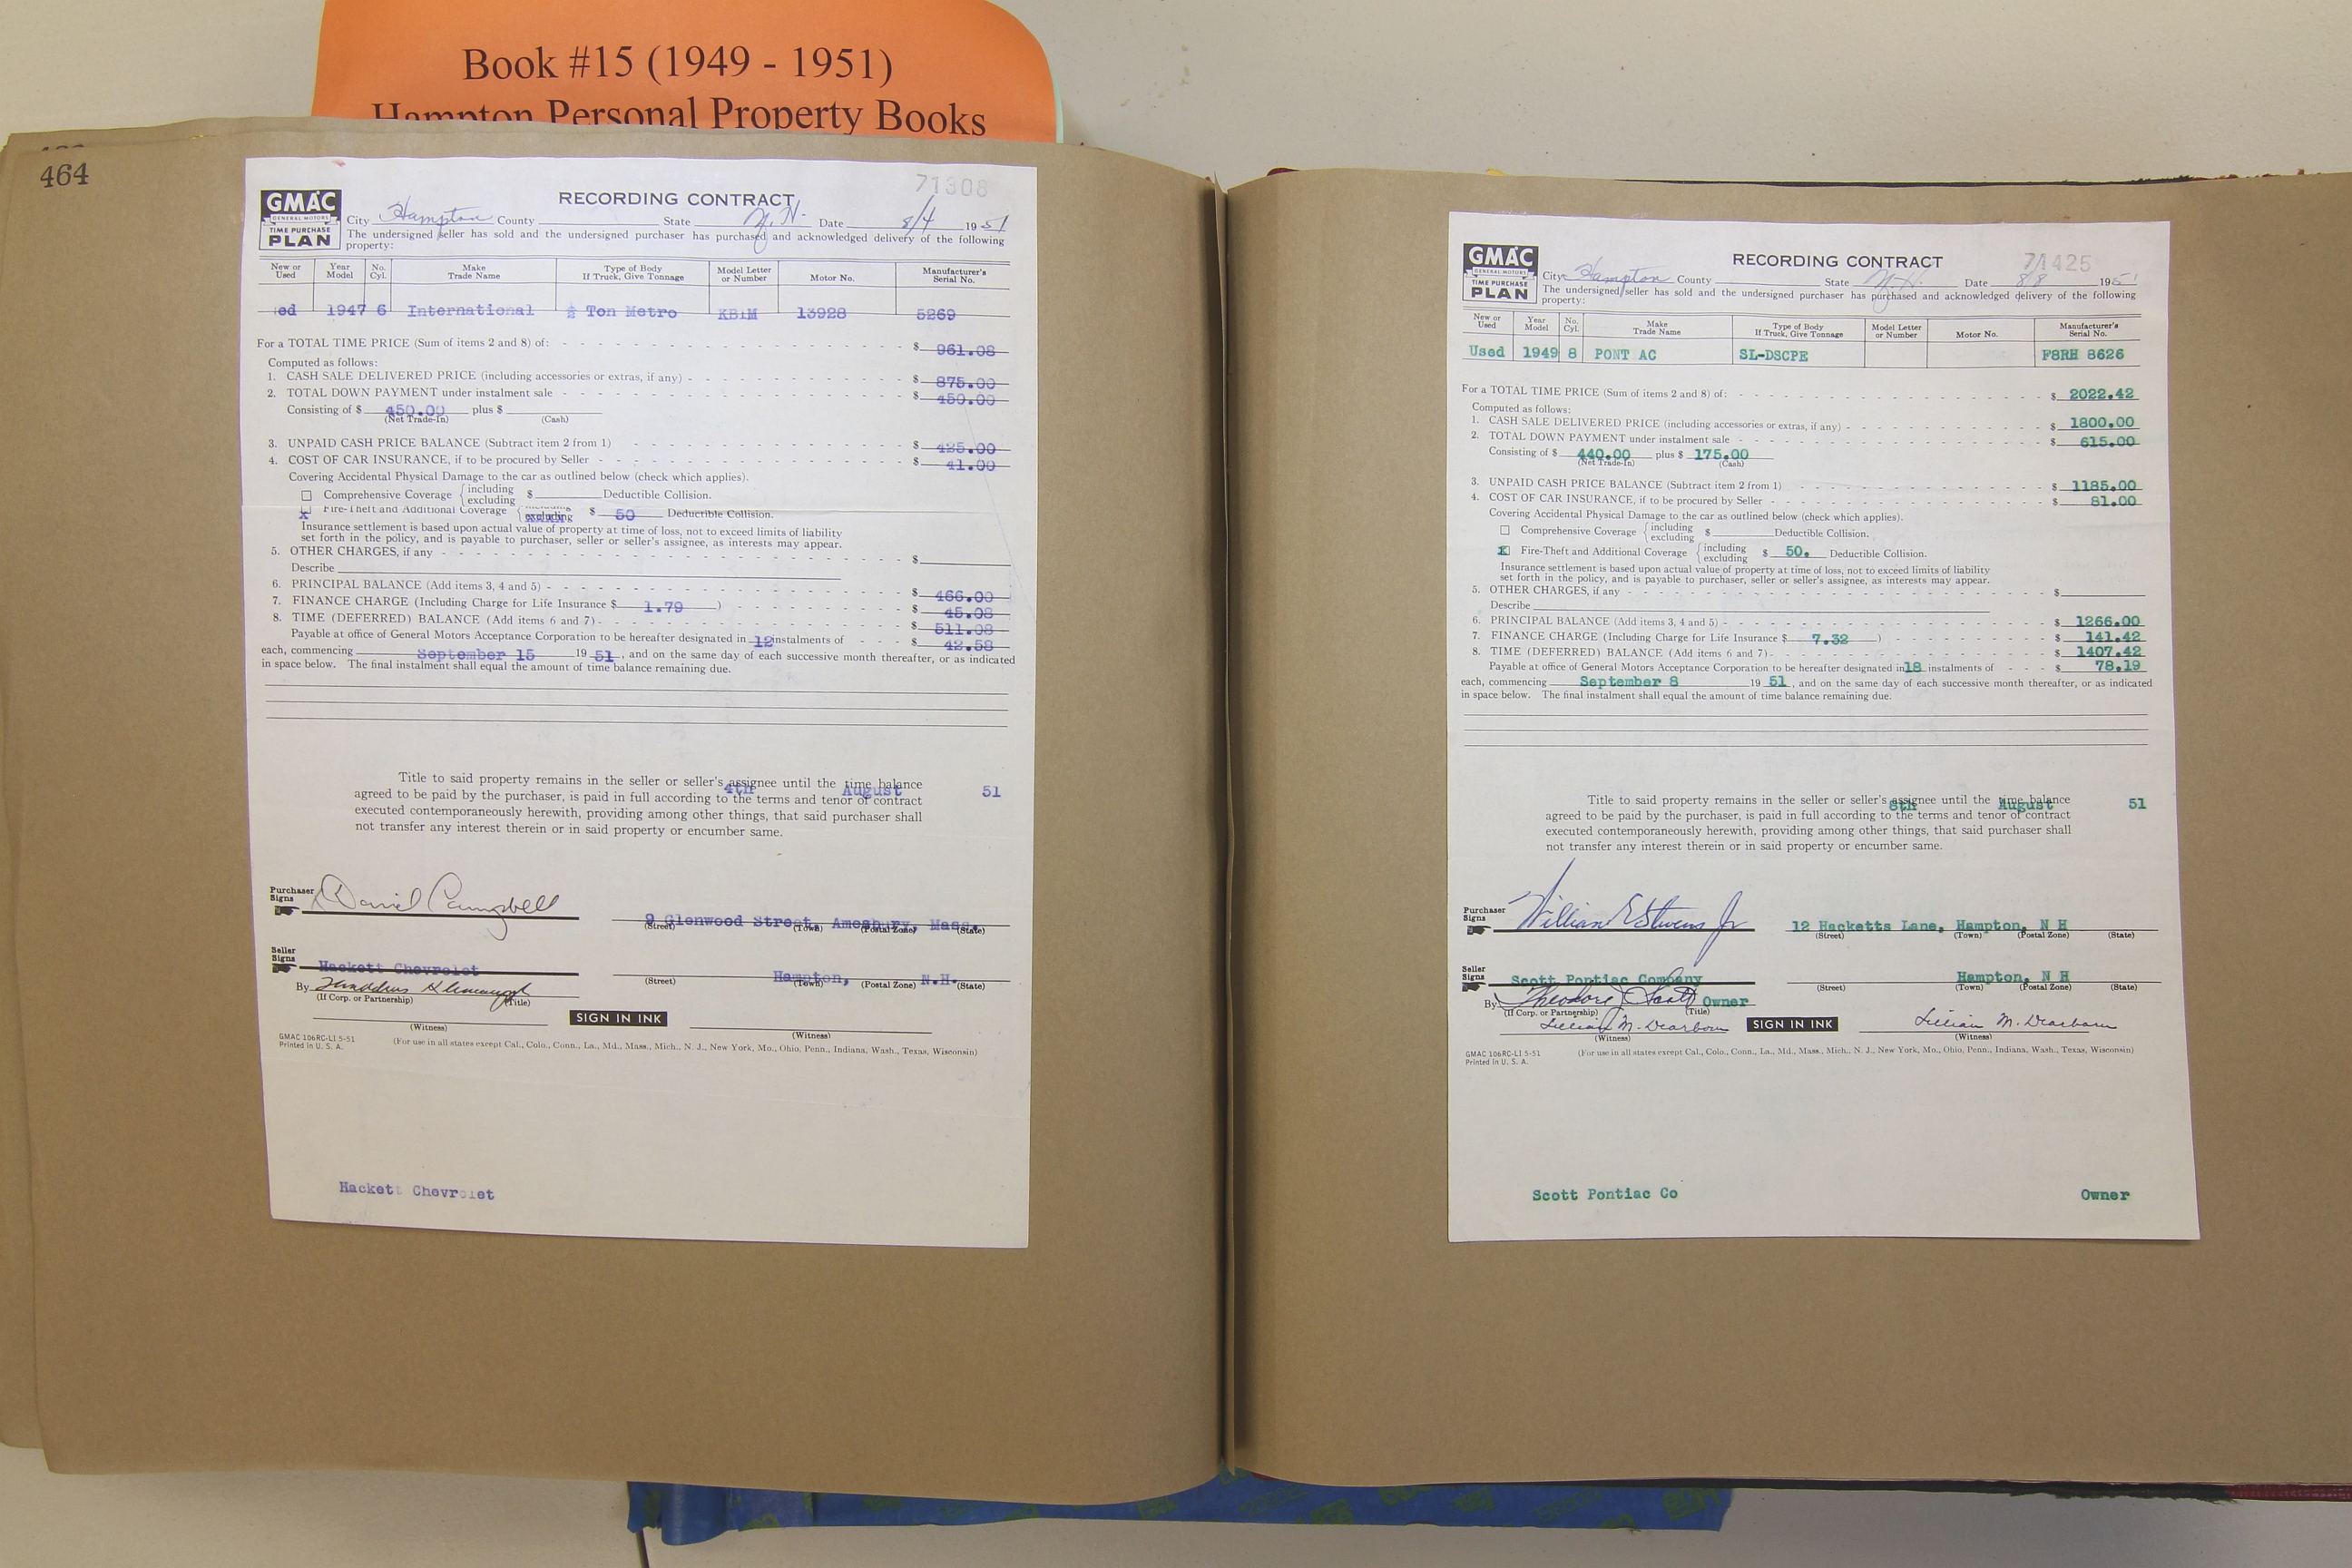 Book #15 (1949 - 1951)
Hampton Personal Property Books
464
GMAC
GENERAL MOTORS
TIME PURCHASE
PLAN
71308
RECORDING CONTRACT
City Hampton County State N. H. Date 8/4 1951
The undersigned seller has sold and the undersigned purchaser has purchased and acknowledged delivery of the following
property:
New or Used Year Model No. Cyl. Make Trade Name Type of Body If Truck, Give Tonnage Model Letter or Number Motor No. Manufacturer's Serial No.
ed 1947 6 International ½ Ton Metro KB1M 13928 5269
For a TOTAL TIME PRICE (Sum of items 2 and 8) of: $ 961.08
Computed as follows:
1. CASH SALE DELIVERED PRICE (including accessories or extras, if any) $ 875.00
2. TOTAL DOWN PAYMENT under instalment sale $ 450.00
Consisting of $ 450.00 plus $
(Net Trade-In) (Cash)
3. UNPAID CASH PRICE BALANCE (Subtract item 2 from 1) $ 425.00
4. COST OF CAR INSURANCE, if to be procured by Seller $ 41.00
Covering Accidental Physical Damage to the car as outlined below (check which applies).
Comprehensive Coverage {including excluding $ Deductible Collision.
x Fire-Theft and Additional Coverage {including excluding $ 50 Deductible Collision.
Insurance settlement is based upon actual value of property at time of loss, not to exceed limits of liability
set forth in the policy, and is payable to purchaser, seller or seller's assignee, as interests may appear.
5. OTHER CHARGES, if any $
Describe
6. PRINCIPAL BALANCE (Add items 3, 4 and 5) $ 466.00
7. FINANCE CHARGE (Including Charge for Life Insurance $ 1.79 ) $ 45.08
8. TIME (DEFERRED) BALANCE (Add items 6 and 7) $ 511.08
Payable at office of General Motors Acceptance Corporation to be hereafter designated in 12 instalments of $ 42.58
each, commencing September 15 19 51, and on the same day of each successive month thereafter, or as indicated
in space below. The final instalment shall equal the amount of time balance remaining due.
Title to said property remains in the seller or seller's assignee until the time balance
4th August 51
agreed to be paid by the purchaser, is paid in full according to the terms and tenor of contract
executed contemporaneously herewith, providing among other things, that said purchaser shall
not transfer any interest therein or in said property or encumber same.
Purchaser Signs David Campbell 9 Glenwood Street, Amesbury, Mass.
(Street) (Town) (Postal Zone) (State)
Seller Signs Hackett Chevrolet Hampton, N.H.
(Street) (Town) (Postal Zone) (State)
By
(If Corp. or Partnership) (Title)
SIGN IN INK
(Witness) (Witness)
GMAC 106RC-LI 5-51
Printed in U. S. A.
(For use in all states except Cal., Colo., Conn., La., Md., Mass., Mich., N. J., New York, Mo., Ohio, Penn., Indiana, Wash., Texas, Wisconsin)
Hackett Chevrolet
GMAC
GENERAL MOTORS
TIME PURCHASE
PLAN
71425
RECORDING CONTRACT
City Hampton County State N.H. Date 8/8 1951
The undersigned seller has sold and the undersigned purchaser has purchased and acknowledged delivery of the following
property:
New or Used Year Model No. Cyl. Make Trade Name Type of Body If Truck, Give Tonnage Model Letter or Number Motor No. Manufacturer's Serial No.
Used 1949 8 PONT AC SL-DSCPE F8RH 8626
For a TOTAL TIME PRICE (Sum of items 2 and 8) of: $ 2022.42
Computed as follows:
1. CASH SALE DELIVERED PRICE (including accessories or extras, if any) $ 1800.00
2. TOTAL DOWN PAYMENT under instalment sale $ 615.00
Consisting of $ 440.00 plus $ 175.00
(Net Trade-In) (Cash)
3. UNPAID CASH PRICE BALANCE (Subtract item 2 from 1) $ 1185.00
4. COST OF CAR INSURANCE, if to be procured by Seller $ 81.00
Covering Accidental Physical Damage to the car as outlined below (check which applies).
Comprehensive Coverage {including excluding $ Deductible Collision.
X Fire-Theft and Additional Coverage {including excluding $ 50. Deductible Collision.
Insurance settlement is based upon actual value of property at time of loss, not to exceed limits of liability
set forth in the policy, and is payable to purchaser, seller or seller's assignee, as interests may appear.
5. OTHER CHARGES, if any $
Describe
6. PRINCIPAL BALANCE (Add items 3, 4 and 5) $ 1266.00
7. FINANCE CHARGE (Including Charge for Life Insurance $ 7.32 ) $ 141.42
8. TIME (DEFERRED) BALANCE (Add items 6 and 7) $ 1407.42
Payable at office of General Motors Acceptance Corporation to be hereafter designated in 18 instalments of $ 78.19
each, commencing September 8 19 51, and on the same day of each successive month thereafter, or as indicated
in space below. The final instalment shall equal the amount of time balance remaining due.
Title to said property remains in the seller or seller's assignee until the time balance
8th August 51
agreed to be paid by the purchaser, is paid in full according to the terms and tenor of contract
executed contemporaneously herewith, providing among other things, that said purchaser shall
not transfer any interest therein or in said property or encumber same.
Purchaser Signs William E Stevens Jr 12 Hacketts Lane, Hampton, N H
(Street) (Town) (Postal Zone) (State)
Seller Signs Scott Pontiac Company Hampton, N H
(Street) (Town) (Postal Zone) (State)
By Theodore J Scott Owner
(If Corp. or Partnership) (Title)
Lillian M. Dearborn SIGN IN INK Lillian M. Dearborn
(Witness) (Witness)
GMAC 106RC-LI 5-51
Printed in U. S. A.
(For use in all states except Cal., Colo., Conn., La., Md., Mass., Mich., N. J., New York, Mo., Ohio, Penn., Indiana, Wash., Texas, Wisconsin)
Scott Pontiac Co Owner